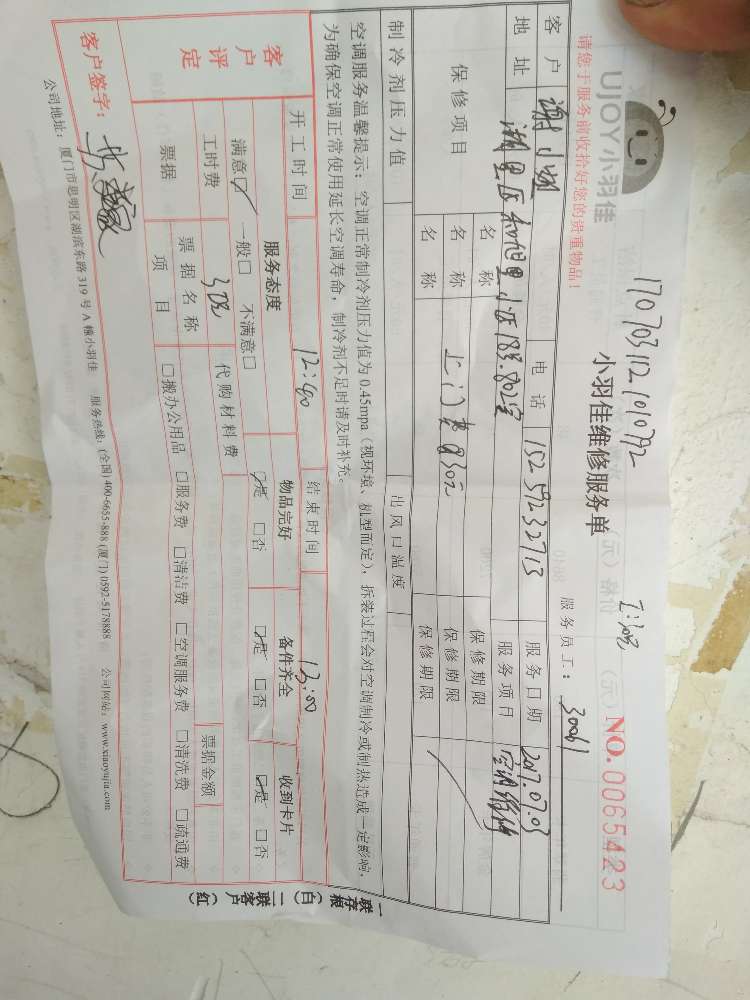 17070311121010792
UJOY小羽佳
小羽佳维修服务单
NO. 0065423
请您于服务前收拾好您的贵重物品！
服务员工：30061
客户 谢小姐 电话 15259232713 服务日期 2017.07.03
地址 湖里区 小区183.802室 服务项目 空调维修
保修项目 名称 保修期限
名称 上门费用30元 保修期限
名称 保修期限
制冷剂压力值 出风口温度
空调服务温馨提示：空调正常制冷剂压力值为0.45mpa（视环境、机型而定），拆装过程会对空调制冷或制热造成一定影响，
为确保空调正常使用延长空调寿命，制冷剂不足时请及时补充。
开工时间 12:40 结束时间 13:00
客户评定 服务态度 物品完好 备件齐全 收到卡片
满意☑ 一般□ 不满意□ ☑是 □否 ☑是 □否 ☑是 □否
工时费 30元 代购材料费
票据 票据名称 票据金额
项目 □搬办公用品 □服务费 □清洁费 □空调服务费 □清洗费 □疏通费
客户签字：
公司地址：厦门市思明区湖滨东路319号A幢小羽佳 服务热线：(全国)400-6655-888 (厦门) 0592-5178888 公司网站：www.xiaoyujia.com
一联存根（白）
二联客户（红）